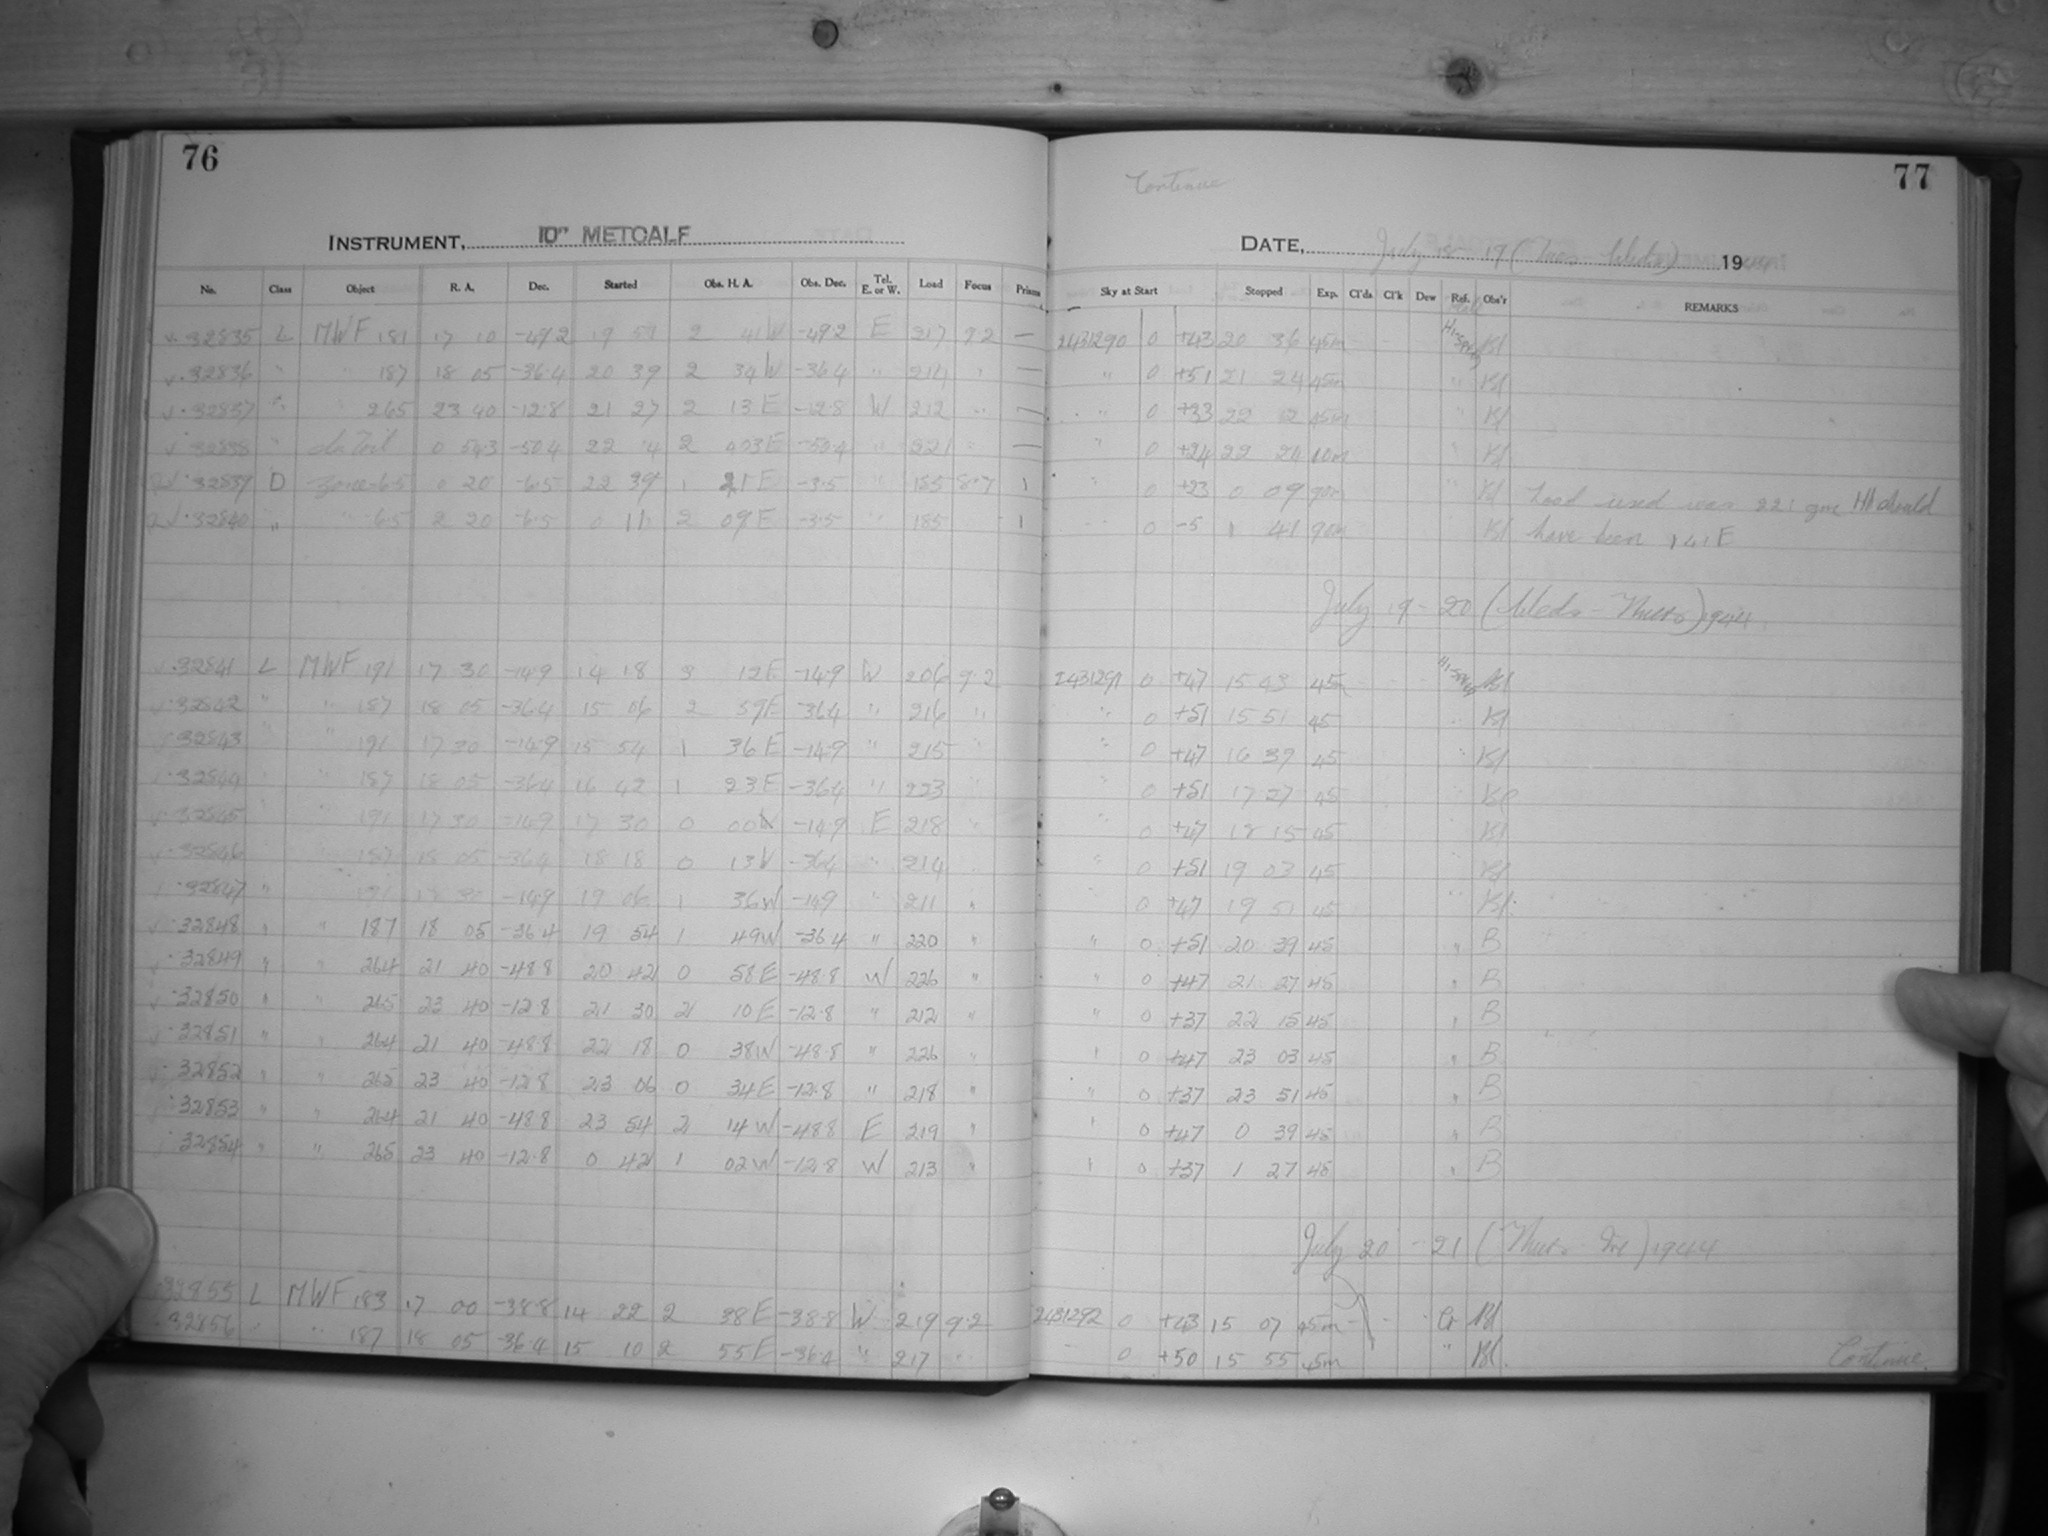 76
INSTRUMENT, 10" METCALF
No. Class Object R. A. Dec. Started Obs. H. A. Obs. Dec. Tel. E. or W. Load Focus Prisms
32835 L MWF 181 17 10 -49.2 19 51 2 41 W -49.2 E 217 9.2 —
32836 " " 187 18 05 -36.4 20 39 2 34 W -36.4 " 214 " —
32837 " 265 23 40 -12.8 21 27 2 13 E -12.8 W 212 " —
32838 " 0 54.3 -50.4 22 14 2 E -50.4 " 221 " —
32839 D Zone -6.5 0 20 -6.5 22 39 1 21 E -3.5 " 185 8.7 1
32840 " " 6.5 2 20 -6.5 0 11 2 09 E -3.5 " 185 1
32841 L MWF 191 17 30 -14.9 14 18 3 12 E -14.9 W 206 9.2
32842 " " 187 18 05 -36.4 15 06 2 59 E -36.4 " 216 "
32843 " " 191 17 30 -14.9 15 54 1 36 E -14.9 " 215 "
32844 " " 187 18 05 -36.4 16 42 1 23 E -36.4 " 223
32845 " 191 17 30 -14.9 17 30 0 00 W -14.9 E 218 "
32846 " 187 18 05 -36.4 18 18 0 13 W -36.4 " 214
32847 " 191 17 30 -14.9 19 06 1 36 W -14.9 " 211 "
32848 " " 187 18 05 -36.4 19 54 1 49 W -36.4 " 220 "
32849 " " 264 21 40 -48.8 20 42 0 58 E -48.8 W 226 "
32850 " " 265 23 40 -12.8 21 30 2 10 E -12.8 " 212 "
32851 " " 264 21 40 -48.8 22 18 0 38 W -48.8 " 226 "
32852 " " 265 23 40 -12.8 23 06 0 34 E -12.8 " 218 "
32853 " " 264 21 40 -48.8 23 54 2 14 W -48.8 E 219 "
32854 " " 265 23 40 -12.8 0 42 1 02 W -12.8 W 213 "
32855 L MWF 183 17 00 -38.8 14 22 2 38 E -38.8 W 219 9.2
32856 " " 187 18 05 -36.4 15 10 2 55 E -36.4 " 217 "
77
Continue
DATE, July 18-19 (Tues-Weds) 1944
Sky at Start Stopped Exp. Cl'ds Cl'k Dew Ref. Obs'r REMARKS
2431290 0 +43 20 36 45m - - Hi-Speed Bl
" 0 +51 21 24 45m " Bl
" 0 +33 22 12 45m " Bl
" 0 +24 22 24 10m " Bl
" 0 +23 0 09 90m Bl Load used was 221 one HA should
0 -5 1 41 90m Bl have been 1 41 E
July 19-20 (Weds-Thurs) 1944
2431291 0 +47 15 03 45m - - - Hi-Speed Bl
" 0 +51 15 51 45 " Bl
" 0 +47 16 39 45 " Bl
" 0 +51 17 27 45 Bl
" 0 +47 18 15 45 Bl
" 0 +51 19 03 45 " Bl
0 +47 19 51 45 " Bl
" 0 +51 20 39 45 " B
" 0 +47 21 27 45 " B
" 0 +37 22 15 45 " B
" 0 +47 23 03 45 " B
" 0 +37 23 51 45 " B
" 0 +47 0 39 45 " B
" 0 +37 1 27 45 " B
July 20-21 (Thurs-Fri) 1944
2431292 0 +43 15 07 45m - - - Cr Bl
" 0 +50 15 55 45m " Bl
Continue